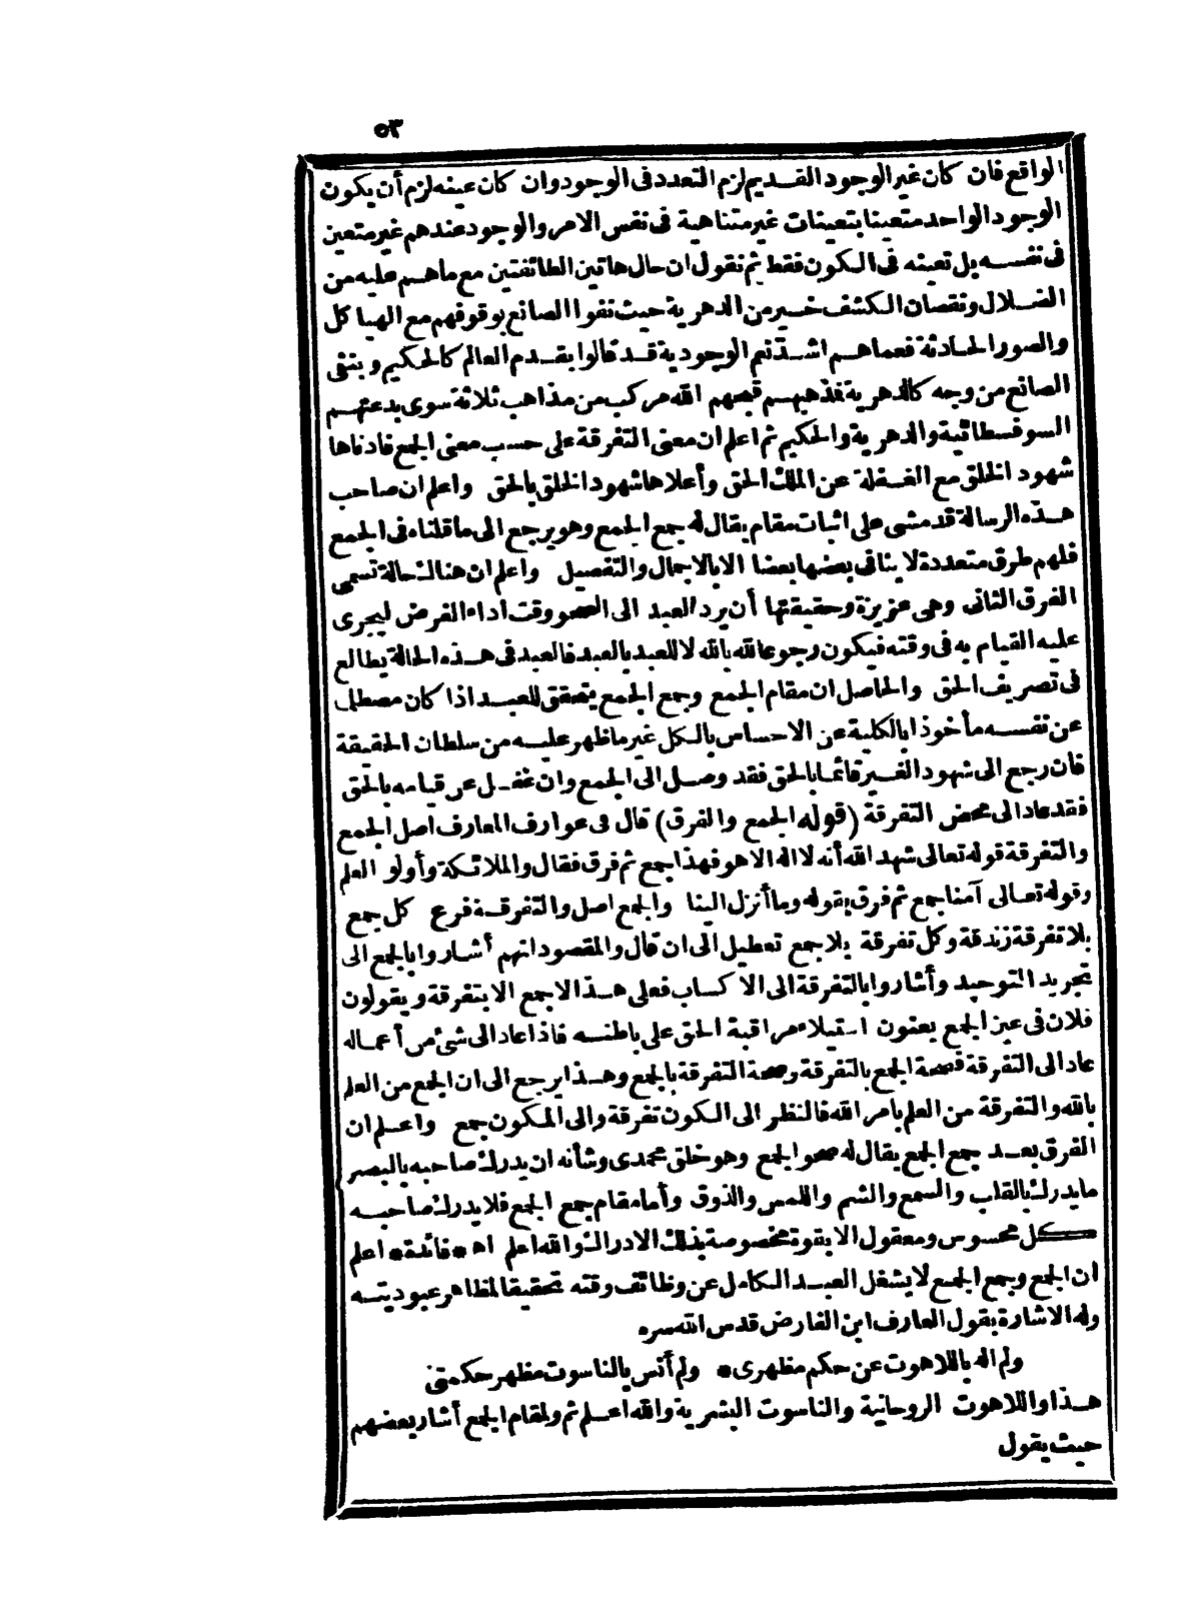 ٥٣
الواقع فان كان غير الوجود القديم لزم التعدد فى الوجود وان كان عينه لزم أن يكون
الوجود الواحد متعينا بتعينات غير متناهية فى نفس الامر والوجود عندهم غير متعين
فى نفسه بل تعينه فى الكون فقط ثم نقول ان حال هاتين الطائفتين مع ماهم عليه من
الضلال ونقصان الكشف خير من الدهرية حيث نفوا الصانع بوقوفهم مع الهياكل
والصور الحادثة فعماهم اشد نعم الوجودية قد قالوا بقدم العالم كالحكيم وبنفى
الصانع من وجه كالدهرية فذهبهم قبحهم الله مركب من مذاهب ثلاثة سوى بدعتهم
السوفسطائية والدهرية والحكيم ثم اعلم ان معنى التفرقة على حسب معنى الجمع فادناها
شهود الخلق مع الغفلة عن الملك الحق وأعلاها شهود الخلق بالحق واعلم ان صاحب
هذه الرسالة قد مشى على اثبات مقام يقال له جمع الجمع وهو يرجع الى ماقلناه فى الجمع
فلهم طرق متعددة لا ينافى بعضها بعضا الا بالاجمال والتفصيل واعلم ان هنالك حالة تسمى
الفرق الثانى وهى عزيزة وحقيقتها أن يرد العبد الى الصحو وقت أداء الفرض ليجرى
عليه القيام به فى وقته فيكون رجوعا لله بالله لا للعبد بالعبد فالعبد فى هذه الحالة يطالع
فى تصريف الحق والحاصل ان مقام الجمع وجمع الجمع يتحقق للعبد اذا كان مصطلما
عن نفسه مأخوذا بالكلية عن الاحساس بالكل غير ماظهر عليه من سلطان الحقيقة
فان رجع الى شهود الغير قائما بالحق فقد وصل الى الجمع وان غفل عن قيامه بالحق
فقد عاد الى محض التفرقة (قوله الجمع والفرق) قال فى عوارف المعارف اصل الجمع
والتفرقة قوله تعالى شهد الله أنه لا اله الا هو فهذا جمع ثم فرق فقال والملائكة وأولو العلم
وقوله تعالى آمنا جمع ثم فرق بقوله وما أنزل الينا والجمع اصل والتفرقة فرع كل جمع
بلا تفرقة زندقة وكل تفرقة بلا جمع تعطيل الى ان قال والمقصود انهم أشاروا بالجمع الى
تجريد التوحيد وأشاروا بالتفرقة الى الاكساب فعلى هذا لا جمع الا بتفرقة ويقولون
فلان فى عين الجمع يعنون استيلاء مراقبة الحق على باطنه فاذا عاد الى شئ من أعماله
عاد الى التفرقة فصحة الجمع بالتفرقة وصحة التفرقة بالجمع وهذا يرجع الى ان الجمع من العلم
بالله والتفرقة من العلم بأمر الله فالنظر الى الكون تفرقة والى المكون جمع واعلم ان
الفرق بعد جمع الجمع يقال له صحو الجمع وهو خلق محمدى وشأنه ان يدرك صاحبه بالبصر
مايدرك بالقلب والسمع والشم واللمس والذوق وأما مقام جمع الجمع فلا يدرك صاحبه
كل محسوس ومعقول الا بقوة مخصوصة بذلك الادراك والله اعلم اه *فائدة* اعلم
ان الجمع وجمع الجمع لا يشغل العبد الكامل عن وظائف وقته تحقيقا لمظاهر عبوديته
وله الاشارة بقول العارف ابن الفارض قدس الله سره
ولم اله باللاهوت عن حكم مظهرى * ولم أنس بالناسوت مظهر حكمتى
هذا واللاهوت الروحانية والناسوت البشرية والله اعلم ثم ولمقام الجمع أشار بعضهم
حيث يقول